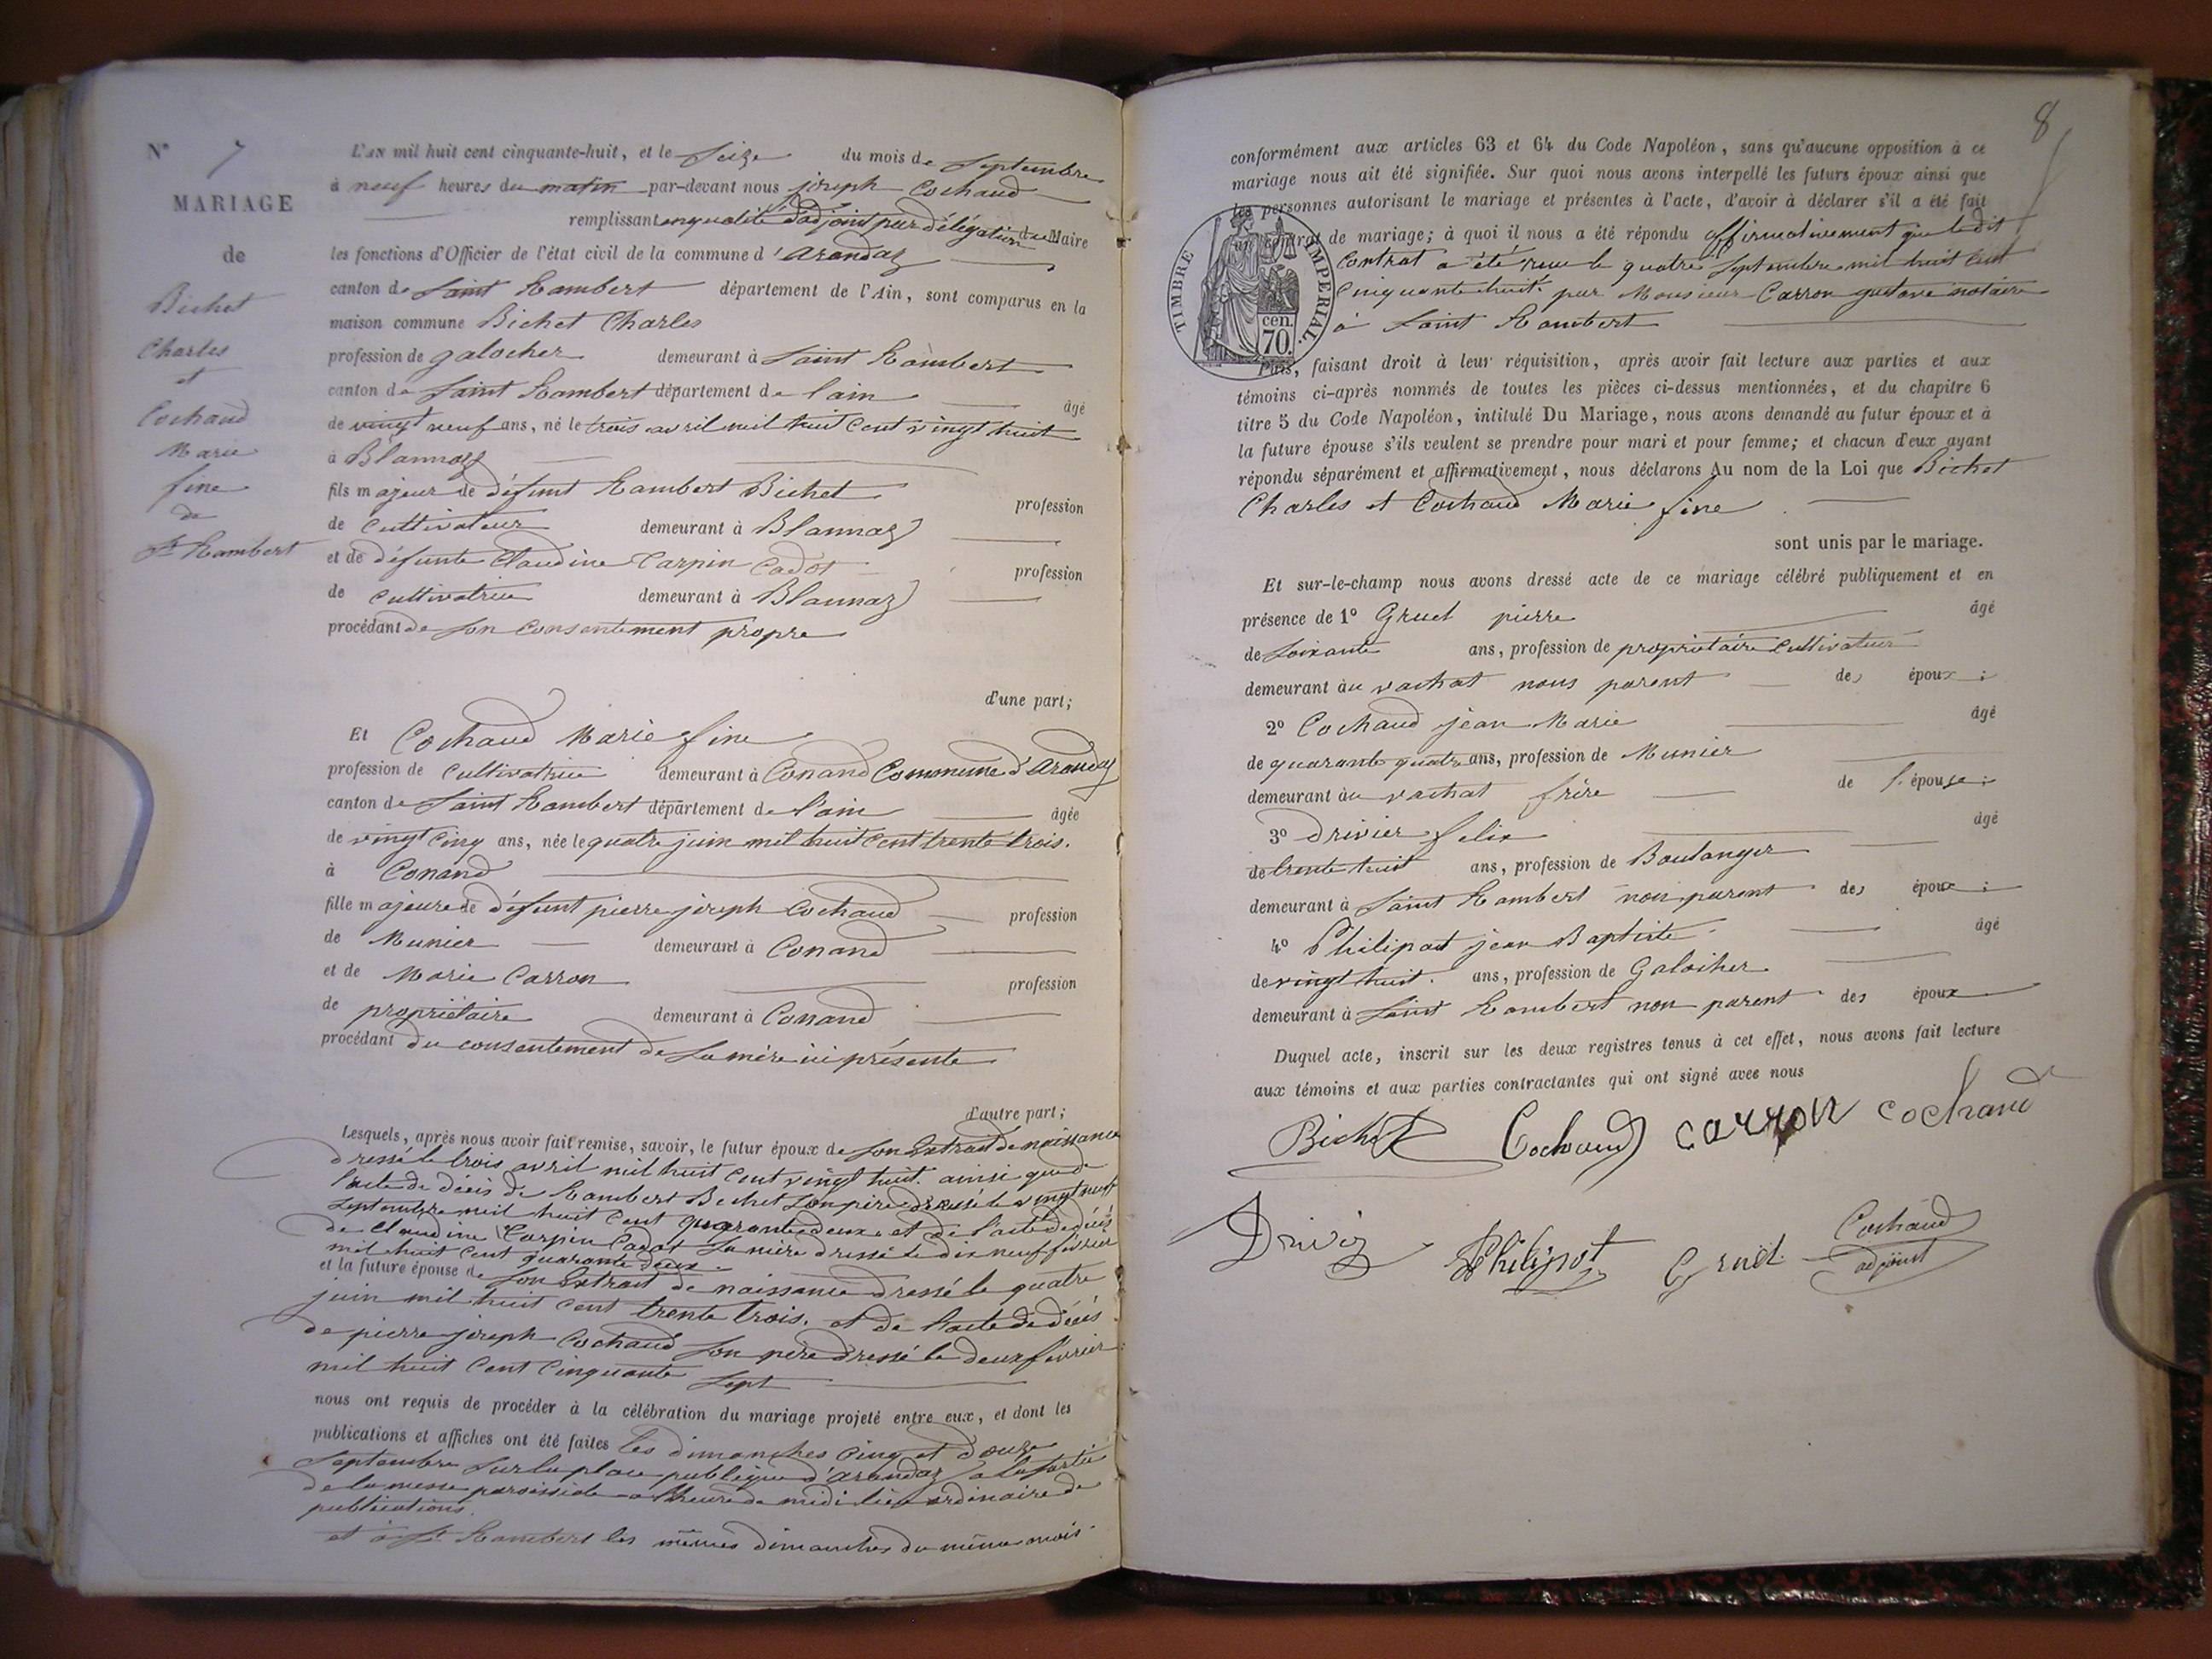 N° 7
MARIAGE
de
Bichet
Charles
et
Cochaud
Marie
fine
de
St Rambert
L'AN mil huit cent cinquante-huit, et le seize du mois de septembre
à neuf heures du matin par-devant nous joseph Cochaud
remplissant en qualité d'adjoint par délégation du Maire
les fonctions d'Officier de l'état civil de la commune d'arandaz
canton de Saint Rambert département de l'Ain, sont comparus en la
maison commune Bichet Charles
profession de galocher demeurant à Saint Rambert
canton de Saint Rambert département de l'ain âgé
de vingt neuf ans, né le trois avril mil huit cent vingt huit
à Blannaz
fils majeur de défunt Rambert Bichet profession
de cultivateur demeurant à Blannaz
et de défunte Claudine Carpin Cadot profession
de cultivatrice demeurant à Blannaz
procédant de son consentement propre
d'une part;
Et Cochaud Marie fine
profession de cultivatrice demeurant à Conand Commune d'arandaz
canton de Saint Rambert département de l'ain âgée
de vingt cinq ans, née le quatre juin mil huit cent trente trois.
à Conand
fille majeure de défunt pierre joseph Cochaud profession
de Munier demeurant à Conand
et de Marie Carron profession
de propriétaire demeurant à Conand
procédant du consentement de sa mère ici présente
d'autre part;
Lesquels, après nous avoir fait remise, savoir, le futur époux de son Extrait de naissance
dressé le trois avril mil huit cent vingt huit. ainsi que de
l'acte de décès de Rambert Bichet son père dressé le vingt neuf
septembre mil huit cent quarante deux. et de l'acte de décès
de Claudine Carpin Cadot sa mère dressé le dix neuf février
mil huit cent quarante deux.
et la future épouse de son Extrait de naissance dressé le quatre
juin mil huit cent trente trois. et de l'acte de décès
de pierre joseph Cochaud son père dressé le deux février
mil huit cent cinquante sept
nous ont requis de procéder à la célébration du mariage projeté entre eux, et dont les
publications et affiches ont été faites les dimanches cinq et douze
septembre sur la place publique d'arandaz a la sortie
de la messe paroissiale a l'heure de midi lieu ordinaire de
publications.
et à St Rambert les mêmes dimanches du même mois.
8
conformément aux articles 63 et 64 du Code Napoléon, sans qu'aucune opposition à ce
mariage nous ait été signifiée. Sur quoi nous avons interpellé les futurs époux ainsi que
les personnes autorisant le mariage et présentes à l'acte, d'avoir à déclarer s'il a été fait
un contrat de mariage; à quoi il nous a été répondu affirmativement que ledit
Contrat a été reçu le quatre septembre mil huit cent
cinquante huit. par Monsieur Carron gustave notaire
à Saint Rambert
TIMBRE IMPERIAL.
cen.
70.
Puis, faisant droit à leur réquisition, après avoir fait lecture aux parties et aux
témoins ci-après nommés de toutes les pièces ci-dessus mentionnées, et du chapitre 6
titre 5 du Code Napoléon, intitulé Du Mariage, nous avons demandé au futur époux et à
la future épouse s'ils veulent se prendre pour mari et pour femme; et chacun d'eux ayant
répondu séparément et affirmativement, nous déclarons Au nom de la Loi que Bichet
Charles et Cochaud Marie fine
sont unis par le mariage.
Et sur-le-champ nous avons dressé acte de ce mariage célébré publiquement et en
présence de 1° Gruel pierre âgé
de soixante ans, profession de propriétaire cultivateur
demeurant au vachat nous parent des époux;
2° Cochaud jean Marie âgé
de quarante quatre ans, profession de Munier
demeurant au vachat frère de l'épouse;
3° Drivier felix âgé
de trente huit ans, profession de Boulanger
demeurant à Saint Rambert non parent des époux;
4° Philipot jean Baptiste âgé
de vingt huit. ans, profession de Galocher
demeurant à Saint Rambert non parent des époux
Duquel acte, inscrit sur les deux registres tenus à cet effet, nous avons fait lecture
aux témoins et aux parties contractantes qui ont signé avec nous
Bichet Cochaud carron cochaud
Philipot Gruel Cochaud
adjoint